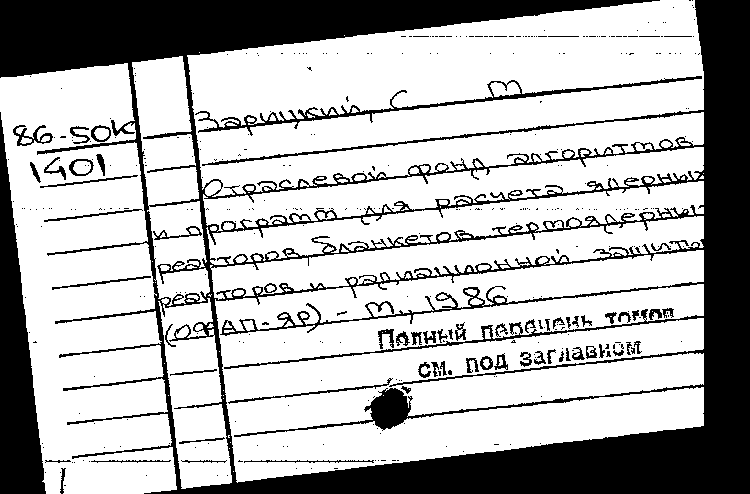 Зарицкий, С М
86-50К
1401
Отраслевой фонд алгоритмов
и программ для расчета ядерных
реакторов, бланкетов термоядерных
реакторов и радиационной защиты
(ОФАП-ЯР). - М., 1986
Полный перечень томов
см. под заглавием